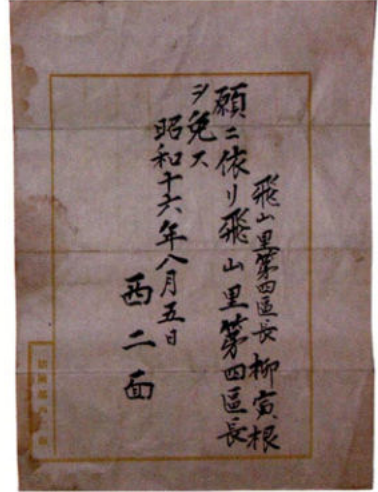 飛山里第四區長 柳寅根
願ニ依リ飛山里第四區長
ヲ免ス
昭和十六年八月五日
西二面